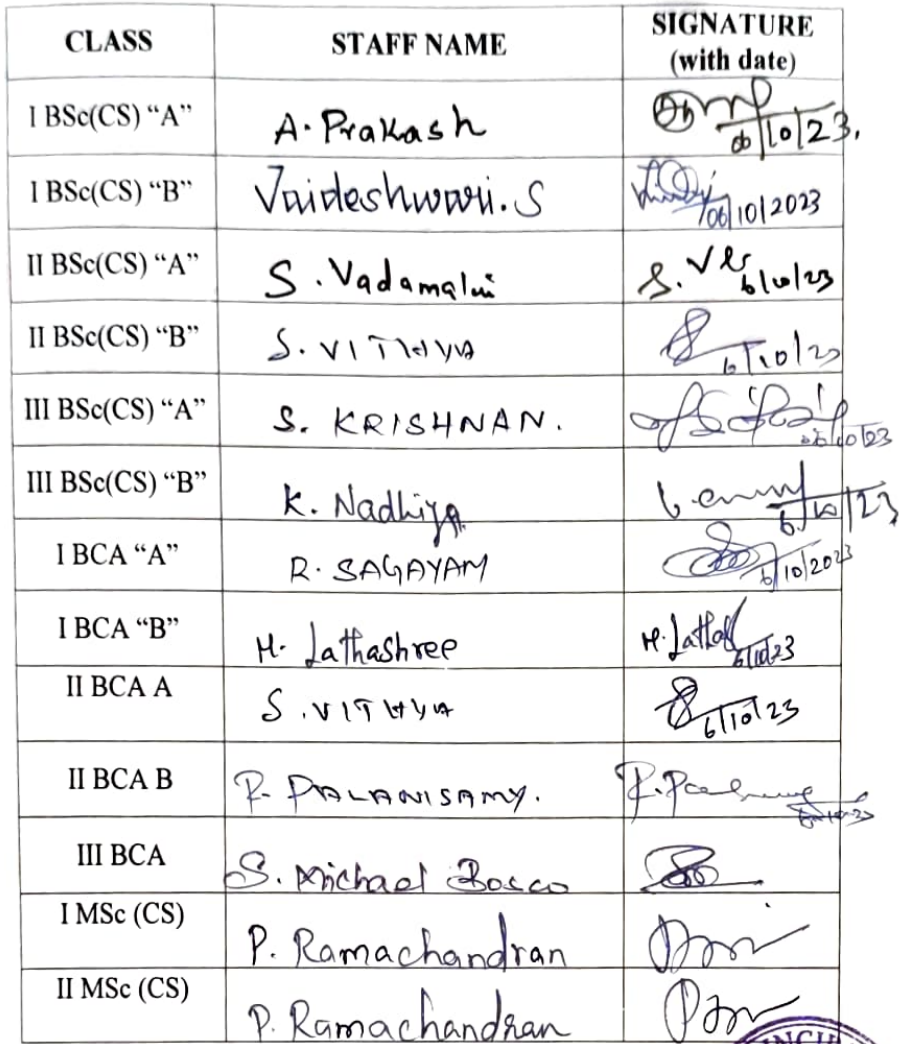 CLASS STAFF NAME SIGNATURE
(with date)
I BSc(CS) “A” A. Prakash 06/10/23.
I BSc(CS) “B” Vaideshwari. S 06/10/2023
II BSc(CS) “A” S. Vadamalai 6/10/23
II BSc(CS) “B” S. VITHYA 6/10/23
III BSc(CS) “A” S. KRISHNAN. 06/10/23
III BSc(CS) “B” K. Nadhiya 6/10/23
I BCA “A” R. SAGAYAM 6/10/2023
I BCA “B” H. Lathashree 6/10/23
II BCA A S. VITHYA 6/10/23
II BCA B P. PALANISAMY.
III BCA S. Michael Bosco
I MSc (CS) P. Ramachandran
II MSc (CS) P. Ramachandran